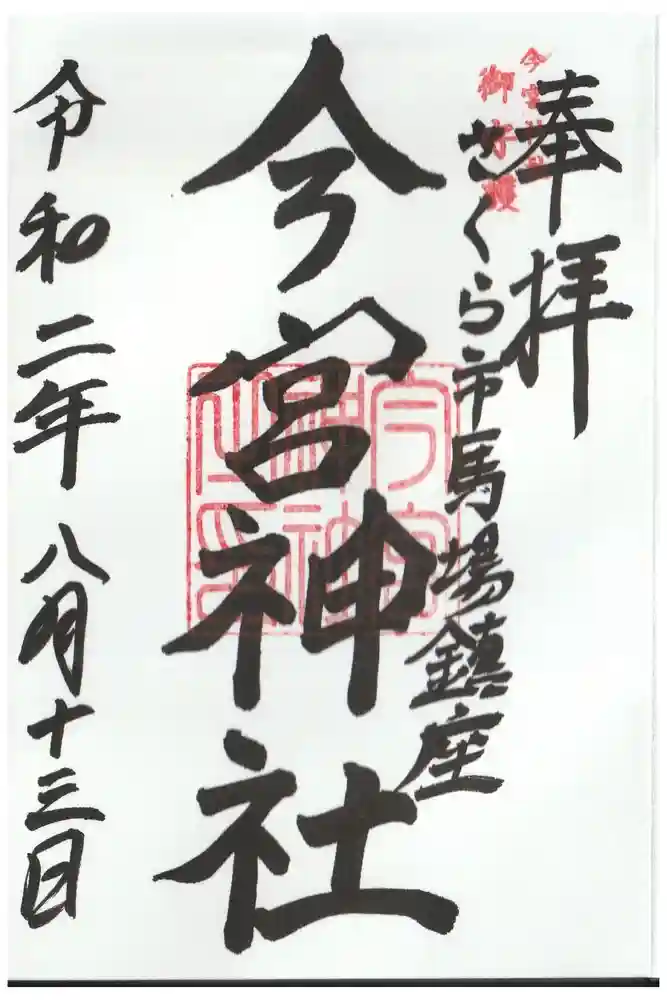 奉拝
さくら市馬場鎮座
今宮神社
令和二年八月十三日
今宮神社
御守護
今宮神社之印